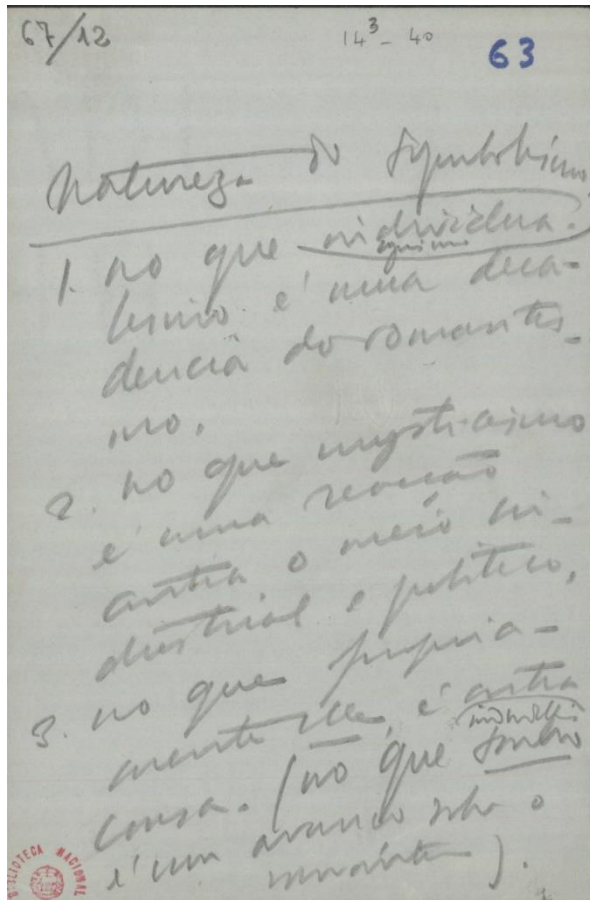 67/12
14³-40
63
Natureza do Symbolismo
1. no que individua-
egoismo
lismo é uma deca-
dencia do romantis-
mo.
2. no que mysticismo
é uma reacção
contra o meio in-
dustrial e politico.
3. no que propria-
mente elle, é outra
cousa. (no que
é um avanço sobre o
romantismo).
BIBLIOTECA NACIONAL